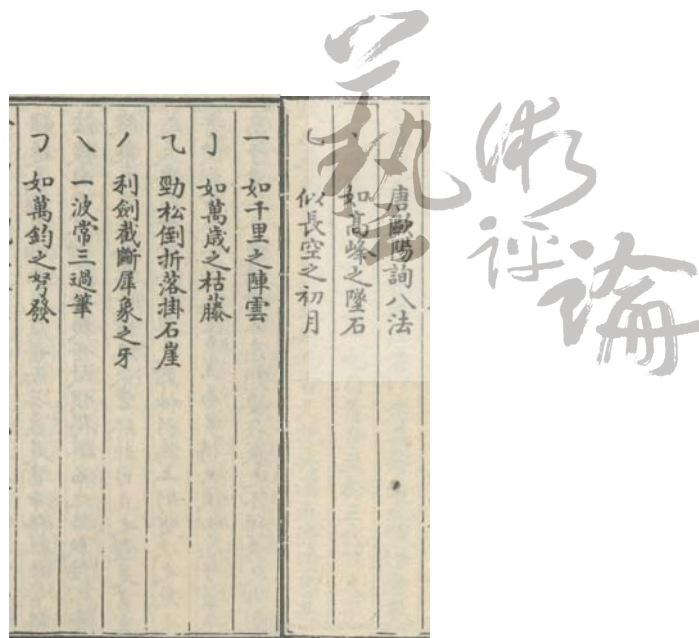 唐歐陽詢八法
丶如高峰之墜石
乚似長空之初月
一如千里之陣雲
亅如萬歲之枯藤
乁勁松倒折落掛石崖
丿利劍截斷犀象之牙
㇏一波常三過筆
㇆如萬鈞之弩發
藝術評論